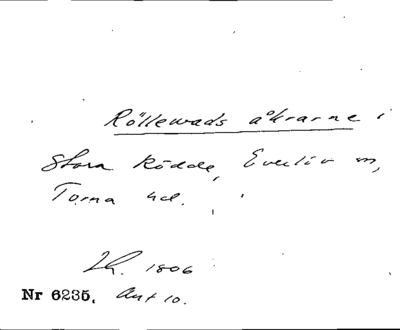 Röllewads åkrarne i
Stora Rödde, Everlöv sn,
Torna hd.
Lh. 1806
Nr 6235. Akt 10.